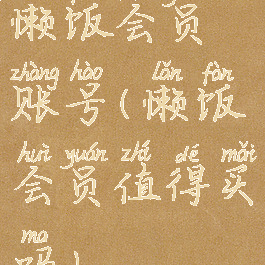 懒饭会员
zhàng hào lǎn fàn
账号(懒饭
huì yuán zhí dé mǎi
会员值得买
ma
吗)